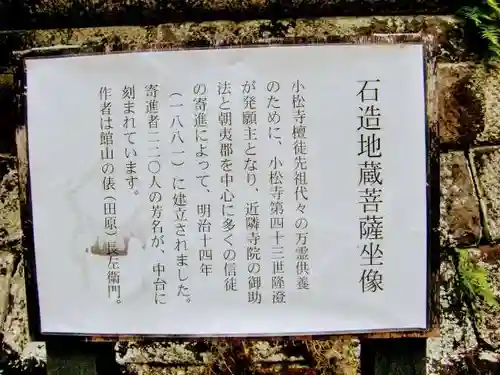 石造地蔵菩薩坐像
小松寺檀徒先祖代々の万霊供養
のために、小松寺第四十三世隆澄
が発願主となり、近隣寺院の御助
法と朝夷郡を中心に多くの信徒
の寄進によって、明治十四年
(一八八一)に建立されました。
寄進者一二〇人の芳名が、中台に
刻まれています。
作者は館山の俵(田原)長左衛門。